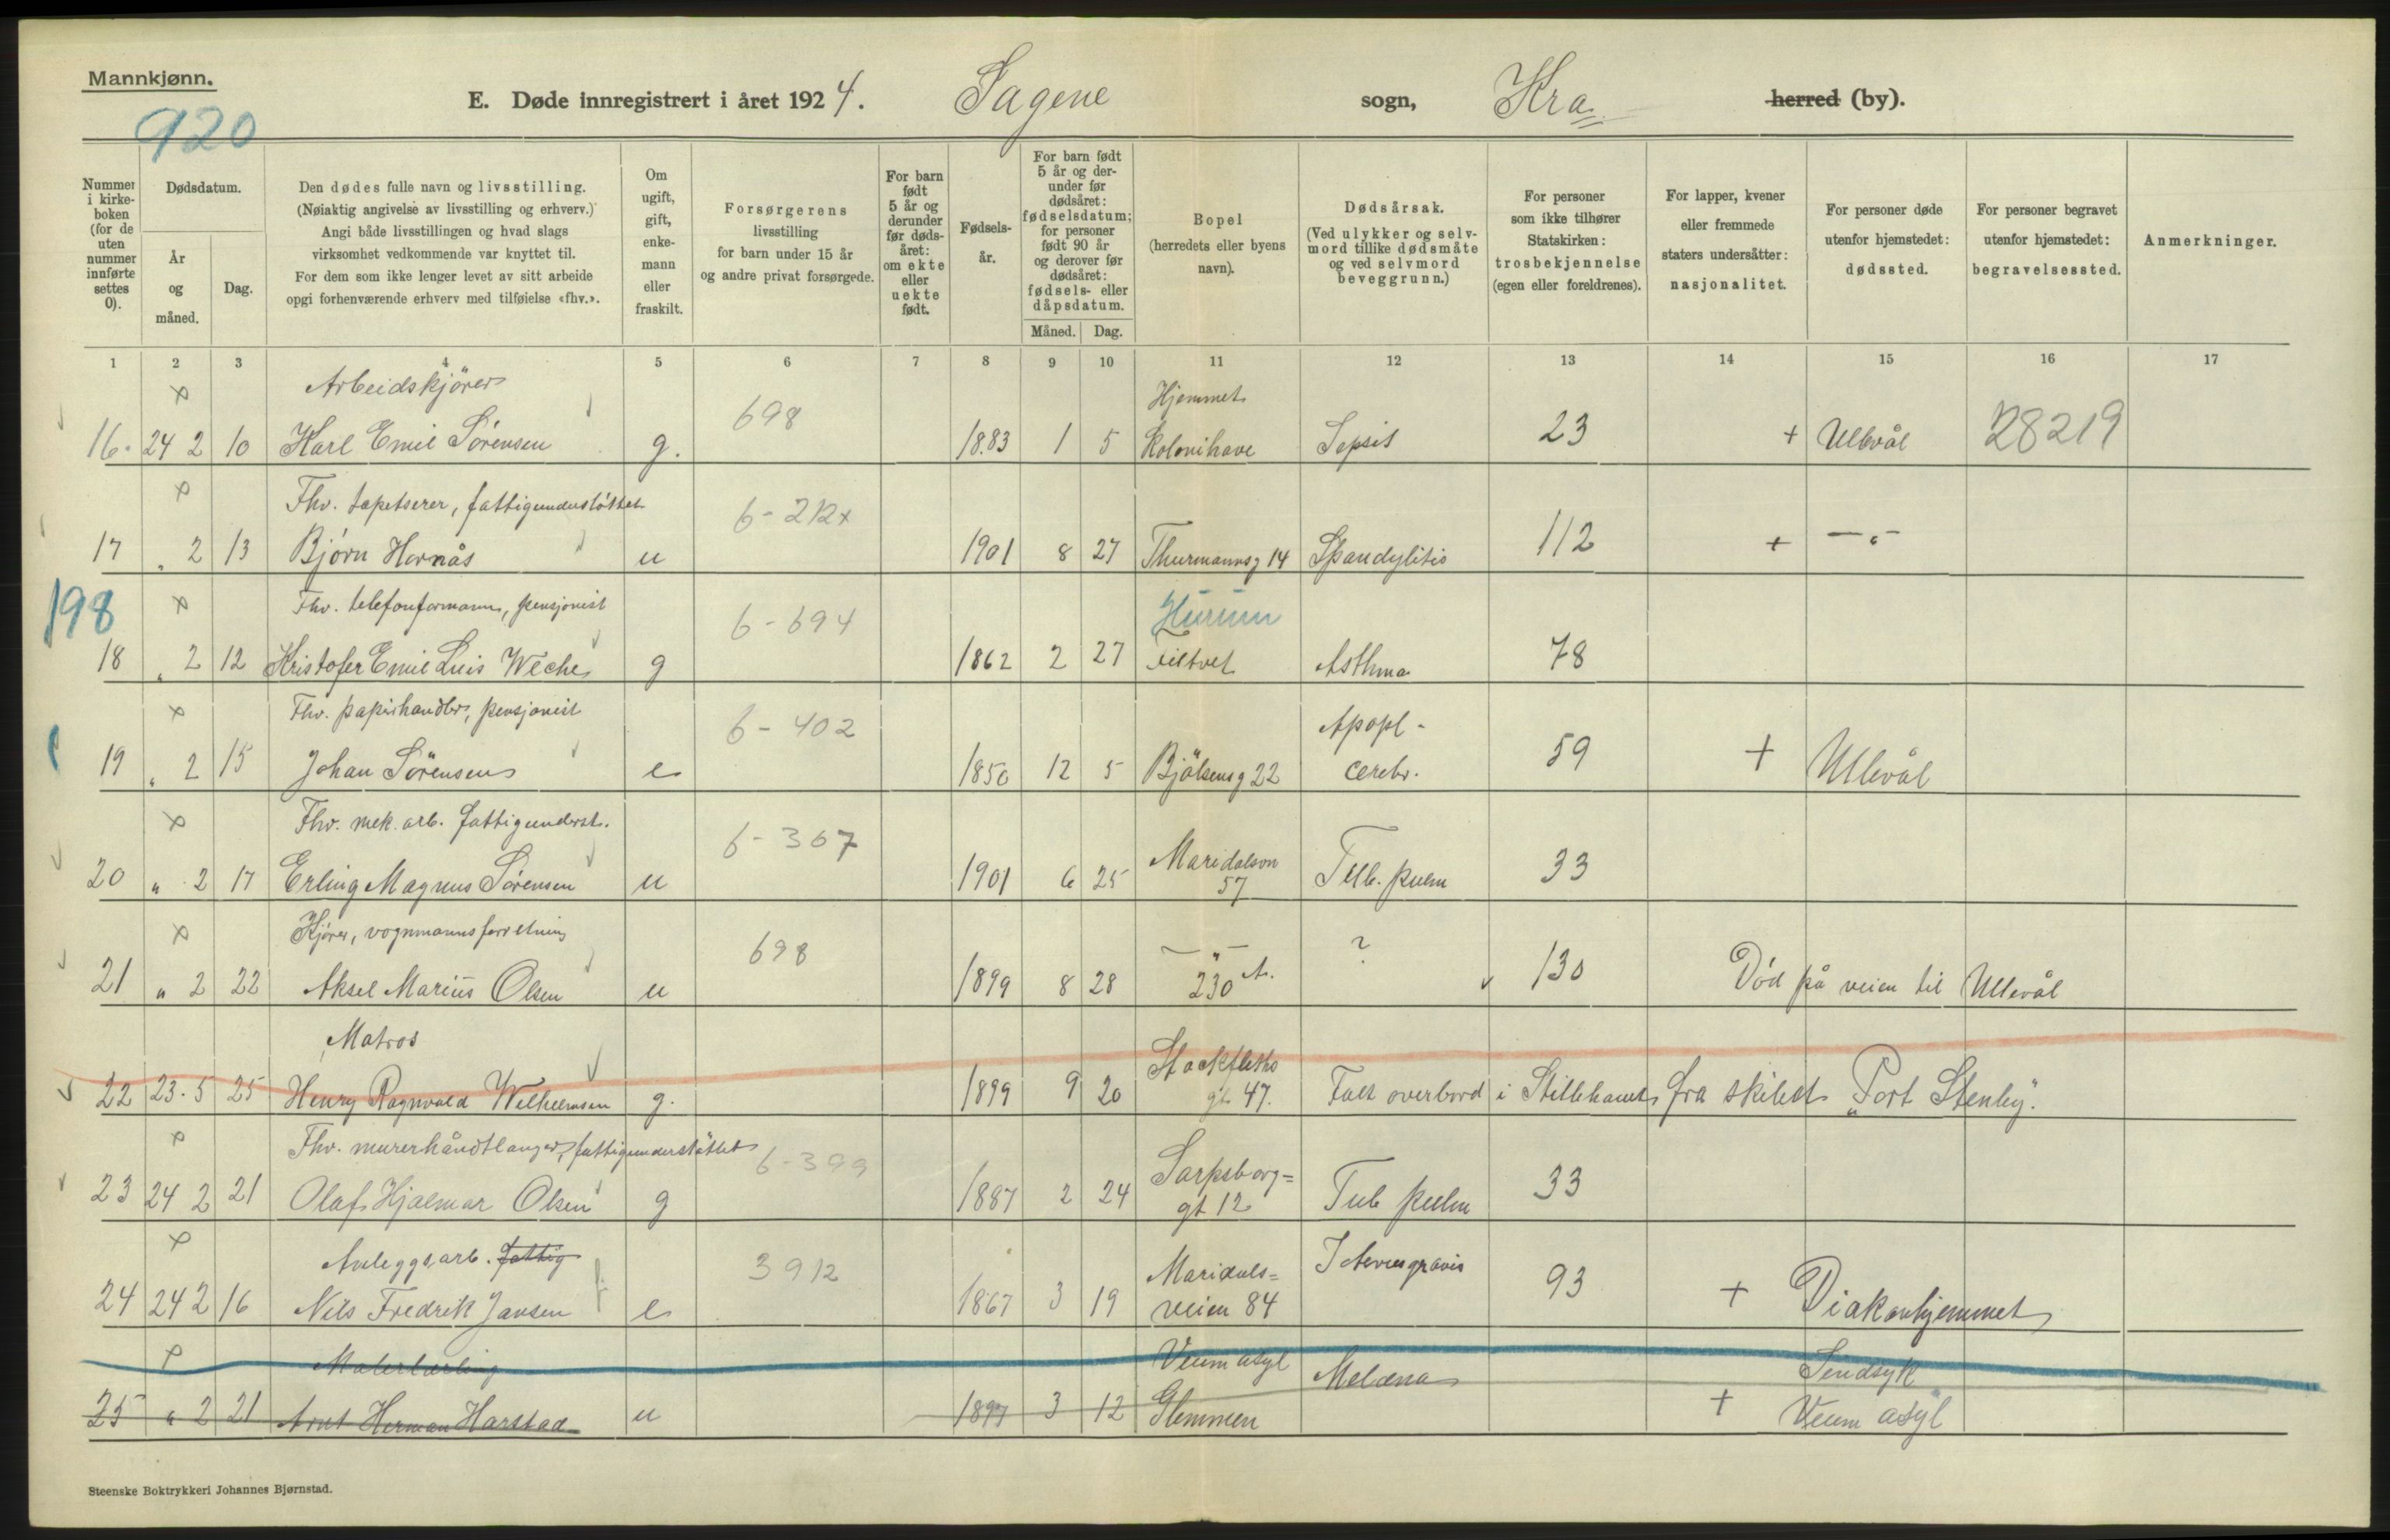 Mannkjønn.
920
E. Døde innregistrert i året 1924. Sagene sogn, Kra. herred (by).
Nummer i kirkeboken (for de uten nummer innførte settes 0).
Dødsdatum.
År og måned.
Dag.
Den dødes fulle navn og livsstilling.
(Nøiaktig angivelse av livsstilling og erhverv.)
Angi både livsstillingen og hvad slags
virksomhet vedkommende var knyttet til.
For dem som ikke lenger levet av sitt arbeide
opgi forhenværende erhverv med tilføielse «fhv.».
Om ugift, gift, enkemann eller fraskilt.
Forsørgerens
livsstilling
for barn under 15 år
og andre privat forsørgede.
For barn født 5 år og derunder før dødsåret: om ekte eller uekte født.
Fødselsår.
For barn født 5 år og derunder før dødsåret: fødselsdatum; for personer født 90 år og derover før dødsåret: fødsels- eller dåpsdatum.
Måned. Dag.
Bopel
(herredets eller byens
navn).
Dødsårsak.
(Ved ulykker og selvmord tillike dødsmåte og ved selvmord beveggrunn.)
For personer
som ikke tilhører
Statskirken:
trosbekjennelse
(egen eller foreldrenes).
For lapper, kvener
eller fremmede
staters undersåtter:
nasjonalitet.
For personer døde
utenfor hjemstedet:
dødssted.
For personer begravet
utenfor hjemstedet:
begravelsessted.
Anmerkninger.
1 2 3 4 5 6 7 8 9 10 11 12 13 14 15 16 17
x Arbeidskjörer 698 Hjemmet
16. 24 2 10 Karl Emil Sörensen g. 1883 1 5 Kolonihave Sepsis 23 + Ullevål 28219
x Fhv. tapetserer, fattigunderstöttet 6-212x
17 „ 2 13 Björn Hornås u 1901 8 27 Thurmannsg 14 Spondylitis 112 + —„—
198 x Fhv. telefonformann, pensjonist 6-694 Hurum
18 „ 2 12 Kristofer Emil Luis Weche g 1862 2 27 Filtvet Asthma 78
x Fhv. papirhandler, pensjonist 6-402 Apopl-
19 „ 2 15 Johan Sörensen e 1850 12 5 Bjölseng 22 cerebr. 59 + Ullevål
x Fhv. mek. arb. fattigunderst. 6-367 Maridalsvn
20 „ 2 17 Erling Magnus Sörensen u 1901 6 25 57 Tub. pulm 33
x Kjörer, vognmannsforretning 698 —„— ?
21 „ 2 22 Aksel Marius Olsen u 1899 8 28 230 A. 130 Död på veien til Ullevål
Matros Stockfleths
22 23.5 25 Henry Ragnvald Wilhelmsen g. 1899 9 20 gt 47. Falt overbord i Stillehavet fra skibet „Port Stenley".
x Fhv. murerhåndtlanger, fattigunderstöttet 6-399 Sarpsborg=
23 24 2 21 Olaf Hjalmar Olsen g 1887 2 24 gt 12 Tub pulm 33
x Anleggsarb. fattig 3912 Maridals= Icterus gravis
24 24 2 16 Nils Fredrik Jansen e 1867 3 19 veien 84 93 + Diakonhjemmet
x Malerlærling Veum asyl Sindsyk
25 „ 2 21 Arnt Herman Harstad u 1897 3 12 Glemmen Melæna + Veum asyl
Steenske Boktrykkeri Johannes Bjørnstad.